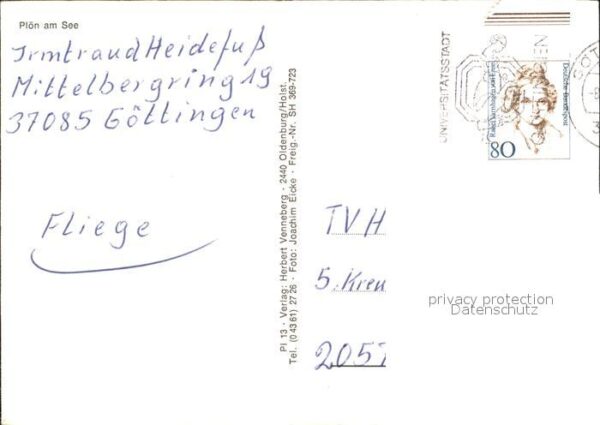 Plön am See
Irmtraud Heidefuß
Mittelbergring 19
37085 Göttingen
Fliege
Pl 13 · Verlag: Herbert Venneberg · 2440 Oldenburg/Holst.
Tel. (0 43 61) 27 26 · Foto: Joachim Eicke · Freig.-Nr. SH 369-723
UNIVERSITÄTSSTADT
Deutsche Bundespost
80
TVH
5. Kreu
205
privacy protection
Datenschutz